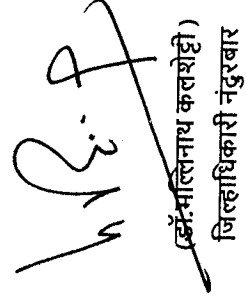 (डॉ.मल्लिनाथ कलशेट्टी)
जिल्हाधिकारी नंदुरबार